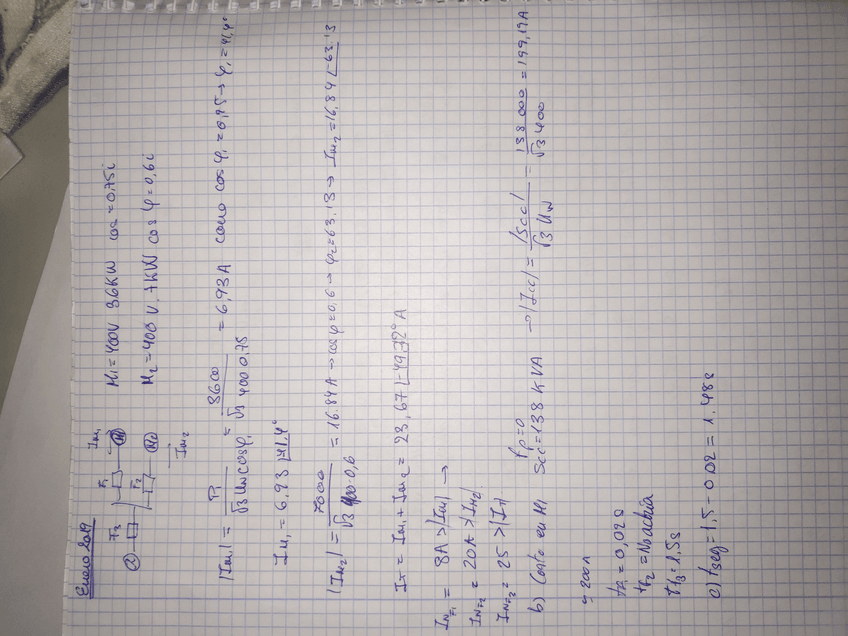 Enero 2019
F3 F1 F2 M1 M2 IM1 IM2
M1 = 400V 3.6KW cos = 0.75i
M2 = 400 V. 7KW cos φ = 0,6i
|IM1| = P1 / √3 UN cosφ1 = 3600 / √3 400 0,75 = 6,93 A como cos φ1 = 0,75 → φ1 = 41,4°
IM1 = 6,93 |-41,4°
|IM2| = 7000 / √3 400·0,6 = 16.84 A → cos φ = 0,6 → φ2 = 63.13 → IM2 = 16,84 |-63.13
IT = IM1 + IM2 = 23,67 |-49,72° A
INF1 = 8A > |IM1| →
INF2 = 20A > |IM2|
INF3 = 25 > |IT|
b) Corto en M1 rp=0 Scc = 138 KVA → |Icc| = |Scc| / √3 UN = 138 000 / √3 400 = 199,19 A
≈ 200A
tf1 = 0,02s
tf2 = No actúa
tf3 = 1,5s
c) tseg = 1,5 - 0.02 = 1.48s